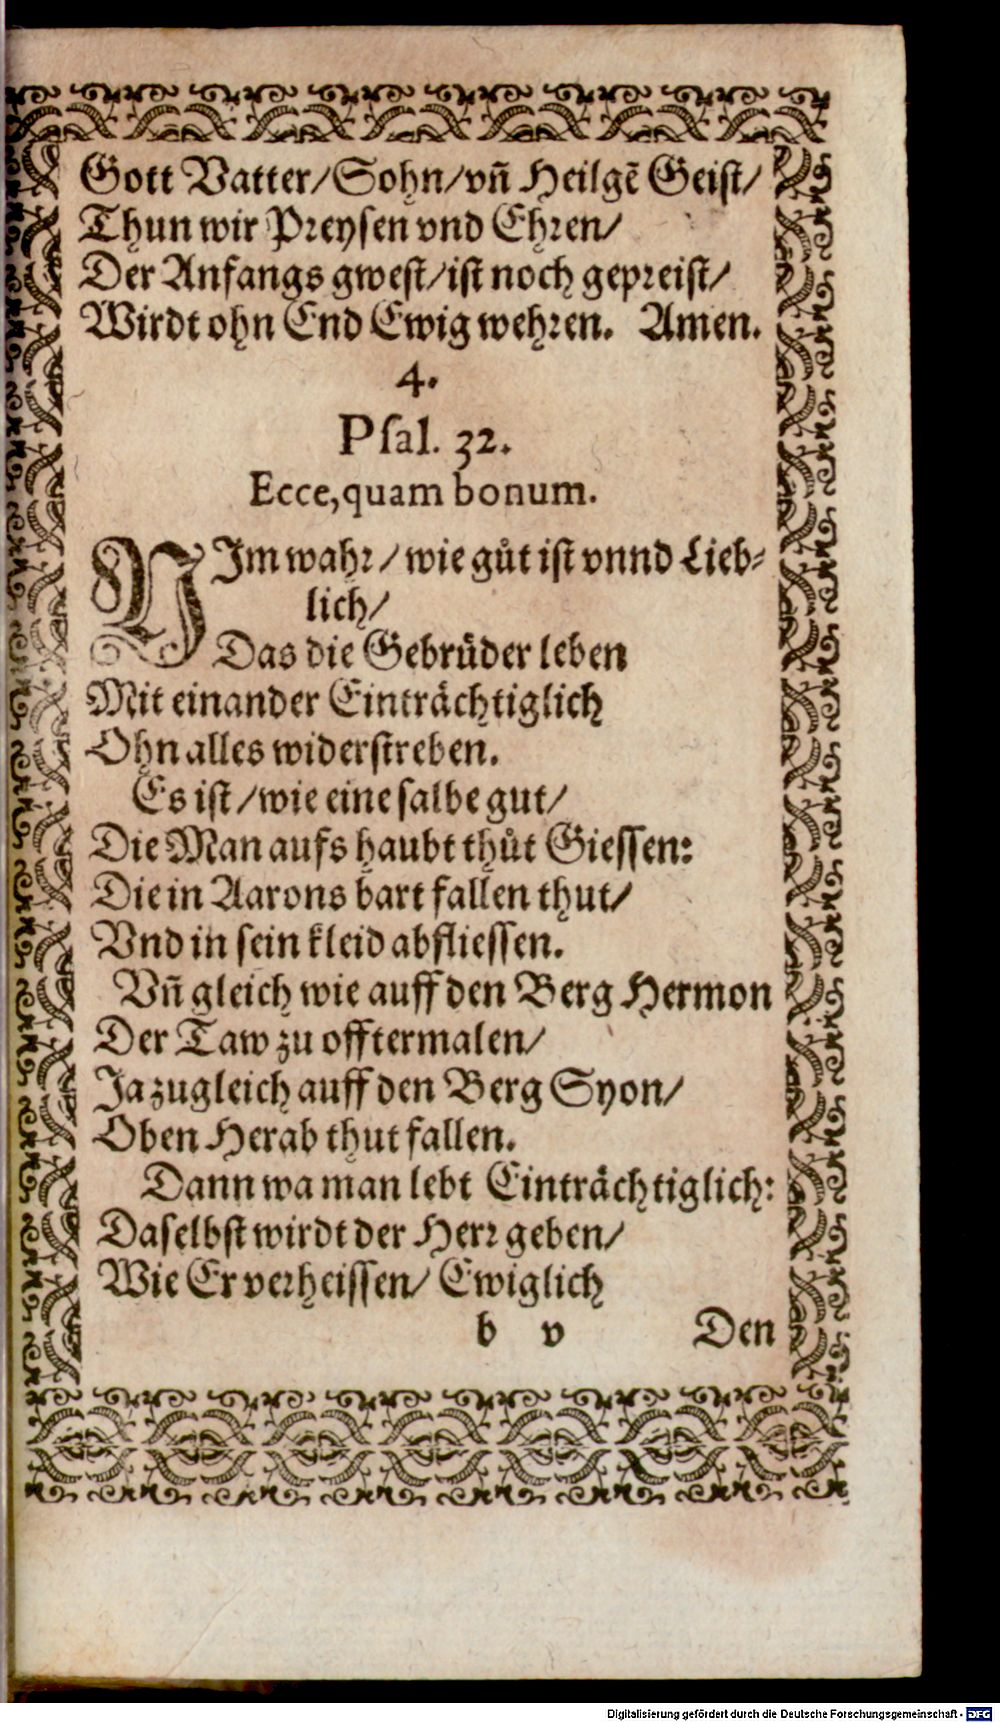 Gott Vatter/Sohn/vñ Heilgẽ Geist/
Thun wir Preysen vnd Ehren/
Der Anfangs gwest/ist noch gepreist/
Wirdt ohn End Ewig wehren. Amen.
4.
Psal. 32.
Ecce, quam bonum.
NIm wahr/ wie gůt ist vnnd Lieb-
lich/
Das die Gebrůder leben
Mit einander Einträchtiglich
Ohn alles widerstreben.
Es ist/wie eine salbe gut/
Die Man aufs haubt thůt Giessen:
Die in Aarons bart fallen thut/
Vnd in sein kleid abfliessen.
Vñ gleich wie auff den Berg Hermon
Der Taw zu offtermalen/
Ja zugleich auff den Berg Syon/
Oben Herab thut fallen.
Dann wa man lebt Einträchtiglich:
Daselbst wirdt der Herr geben/
Wie Er verheissen/ Ewiglich
b v Den
Digitalisierung gefördert durch die Deutsche Forschungsgemeinschaft - DFG